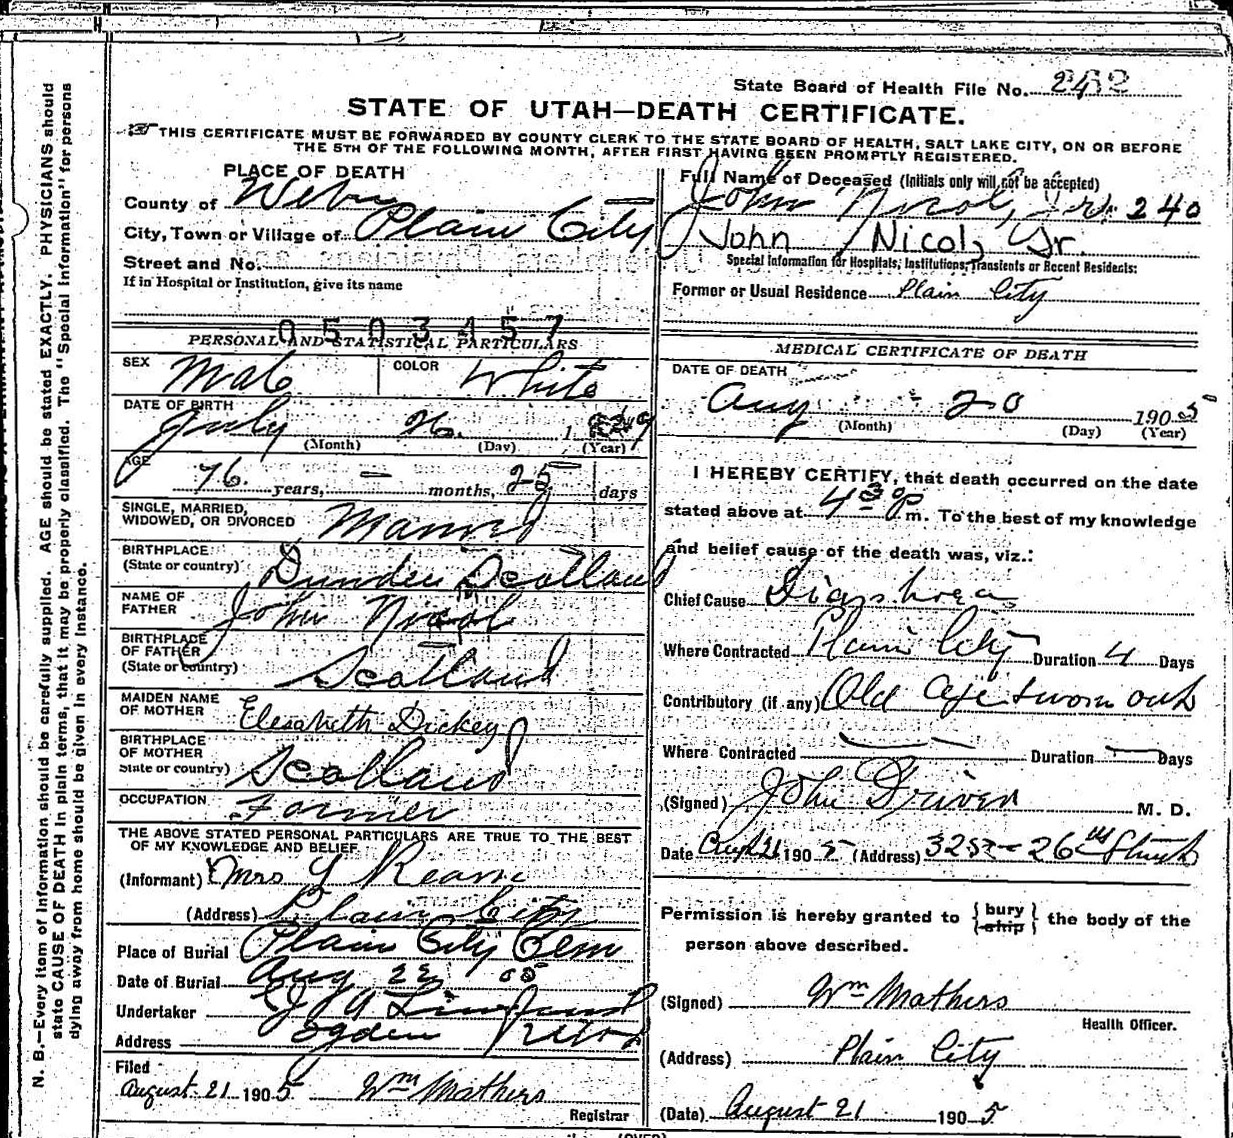 State Board of Health File No. 2432
STATE OF UTAH—DEATH CERTIFICATE.
THIS CERTIFICATE MUST BE FORWARDED BY COUNTY CLERK TO THE STATE BOARD OF HEALTH, SALT LAKE CITY, ON OR BEFORE
THE 5TH OF THE FOLLOWING MONTH, AFTER FIRST HAVING BEEN PROMPTLY REGISTERED.
PLACE OF DEATH
County of Weber
City, Town or Village of Plain City
Street and No.
If in Hospital or Institution, give its name
0503457
PERSONAL AND STATISTICAL PARTICULARS
SEX Male COLOR White
DATE OF BIRTH
July 26. 1829
(Month) (Day) (Year)
AGE
76. years, — months, 25 days
SINGLE, MARRIED,
WIDOWED, OR DIVORCED Married
BIRTHPLACE
(State or country) Dundee Scotland
NAME OF
FATHER John Nicol
BIRTHPLACE
OF FATHER
(State or country) Scotland
MAIDEN NAME
OF MOTHER Elesabeth Dickey
BIRTHPLACE
OF MOTHER
State or country) Scotland
OCCUPATION Farmer
THE ABOVE STATED PERSONAL PARTICULARS ARE TRUE TO THE BEST
OF MY KNOWLEDGE AND BELIEF
(Informant) Mrs
(Address) Plain City
Place of Burial Plain City Cem
Date of Burial Aug 22 05
Undertaker
Address Ogden Utah
Filed
August 21 1905 Wm Mathers
Registrar
Full Name of Deceased (Initials only will not be accepted)
John Nicol, Jr. 240
John Nicol, Jr.
Special Information for Hospitals, Institutions, Transients or Recent Residents:
Former or Usual Residence Plain City
MEDICAL CERTIFICATE OF DEATH
DATE OF DEATH
Aug 20 1905
(Month) (Day) (Year)
I HEREBY CERTIFY, that death occurred on the date
stated above at 4 30 p m. To the best of my knowledge
and belief cause of the death was, viz.:
Chief Cause Diarrhoea
Where Contracted Plain City Duration 4 Days
Contributory (if any) Old age & worn out
Where Contracted — Duration — Days
(Signed) John Driver M. D.
Date Aug 21 1905 (Address) 325 26th Street
Permission is hereby granted to {bury
ship} the body of the
person above described.
(Signed) Wm Mathers
Health Officer.
(Address) Plain City
(Date) August 21 1905
(OVER)
N. B.—Every item of information should be carefully supplied. AGE should be stated EXACTLY. PHYSICIANS should
state CAUSE OF DEATH in plain terms, that it may be properly classified. The "Special Information" for persons
dying away from home should be given in every instance.